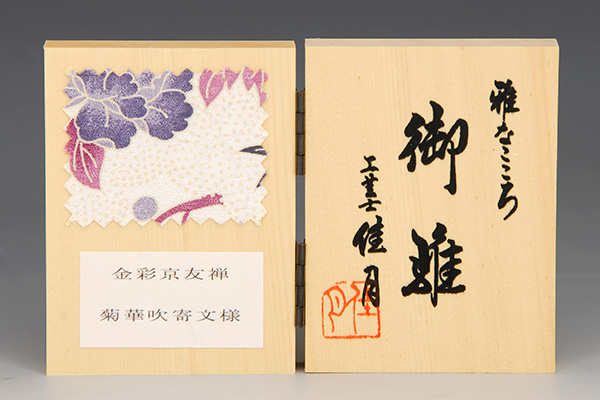 金彩京友禅
菊華吹寄文様
雅なこころ
御雛
工芸士 佳月
佳月